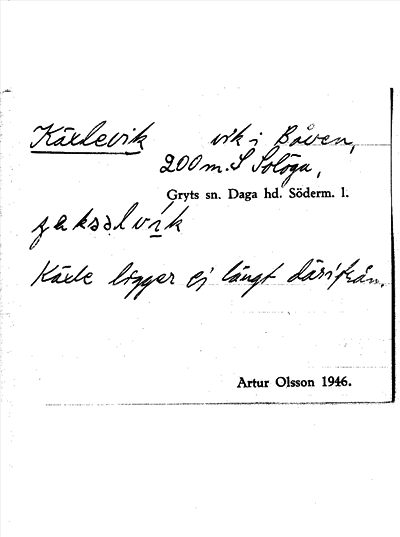 Käxlevik vik i Båven,
200 m. S Solöga,
Gryts sn. Daga hd. Söderm. l.
Käxle ligger ej långt därifrån.
Artur Olsson 1946.